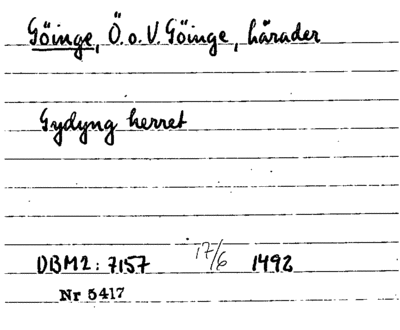 Göinge, Ö. o. V. Göinge, härader
Gydyng herret
DBM2: 7157 17/6 1492
Nr 5417